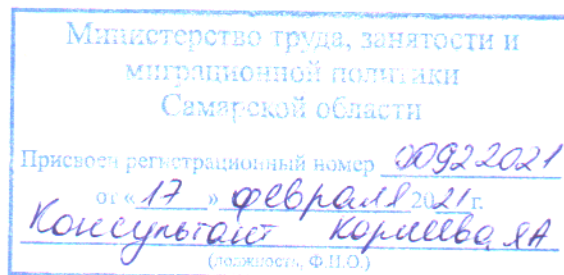 Министерство труда, занятости и
миграционной политики
Самарской области
Присвоен регистрационный номер 00922021
от «17» февраля 2021 г.
Консультант ЯА
(должность, Ф.И.О.)